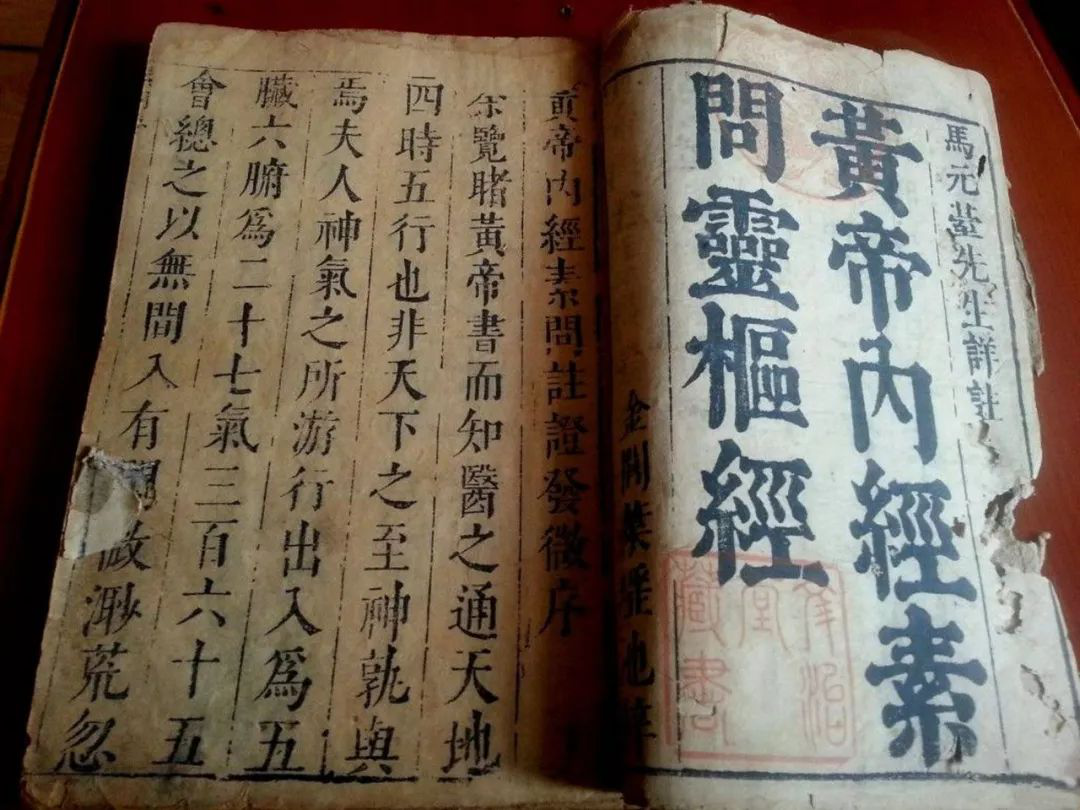 馬元臺先生詳註
黃帝內經素
問靈樞經
堂
藏書
金閶葉
黃帝內經素問註證發微序
余覽睹黃帝書而知醫之通天地
四時五行也非天下之至神孰與
焉夫人神氣之所游行出入爲五
臟六腑爲二十七氣三百六十五
會總之以無間入有間故渺荒忽